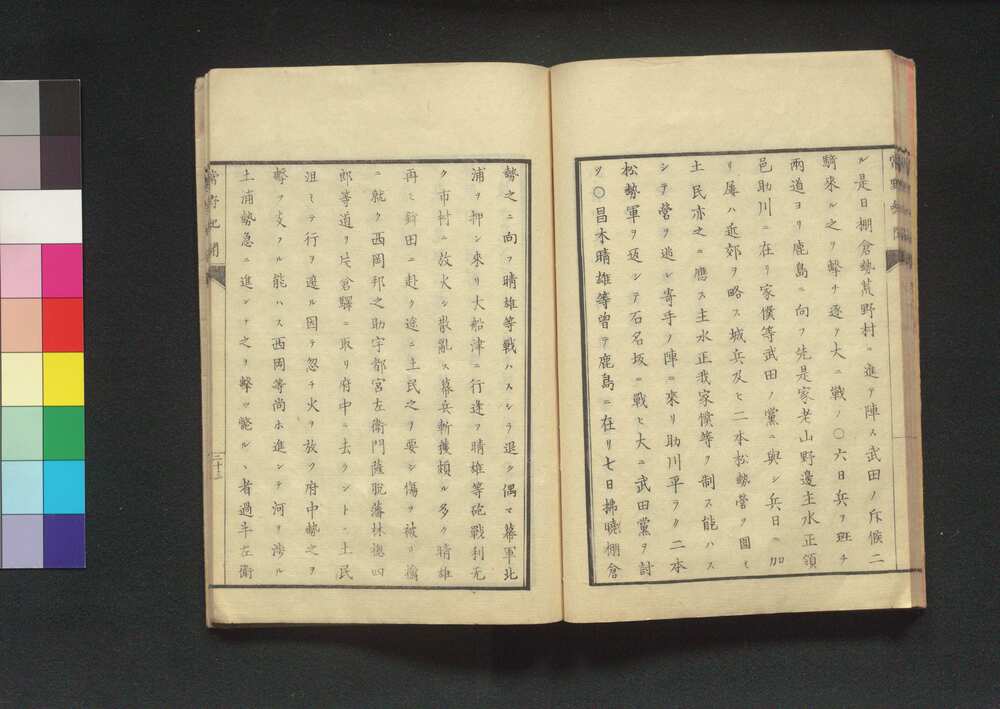 ル是日棚倉勢荒野村ニ進テ陣ス武田ノ斥候二
騎來ル之ヲ擊チ逐ヲ大ニ戰ノ〇六日兵ヲ班チ
兩道ヨリ鹿島ニ向フ先是家老山野邊主水正領
邑助川ニ在リ家僕等武田ノ黨ニ與シ兵日ニ加
リ屢ハ近郊ヲ略ス城兵及ヒ二本松勢營ヲ圍ミ
土民亦之ニ應ス主水正我家僕等ヲ制ス能ハス
シテ營ヲ逃レ寄手ノ陣ニ來リ助川平ラク二本
松勢軍ヲ返シテ石名坂ニ戰ヒ大ニ武田黨ヲ討
ツ〇昌木晴雄等曾ヲ鹿島ニ在リ七日拂曉棚倉
勢之ニ向フ晴雄等戰ハスシラ退ク偶マ幕軍北
浦ヲ押シ來リ大船津ニ行逢フ晴雄等砲戰利无
ク市村ニ放火シ散亂ス幕兵斬獲頗ル多ク晴雄
再ヒ鉾田ニ赴ク途ニ土民之ヲ要シ傷ヲ被リ擒
ニ就ク西岡邦之助宇都宮左衛門薩脫藩林𥡴四
郎等道ヲ片倉驛ニ取リ府中ニ去ラントシ土民
沮ミテ行ヲ遮ル因テ忽チ火ヲ放ツ府中勢之ヲ
擊ツ支フル能ハス西岡等尚ホ進ンテ河ヲ渉ル
土浦勢急ニ進ンテ之ヲ擊ツ斃ルヽ者過半左衛
三十三